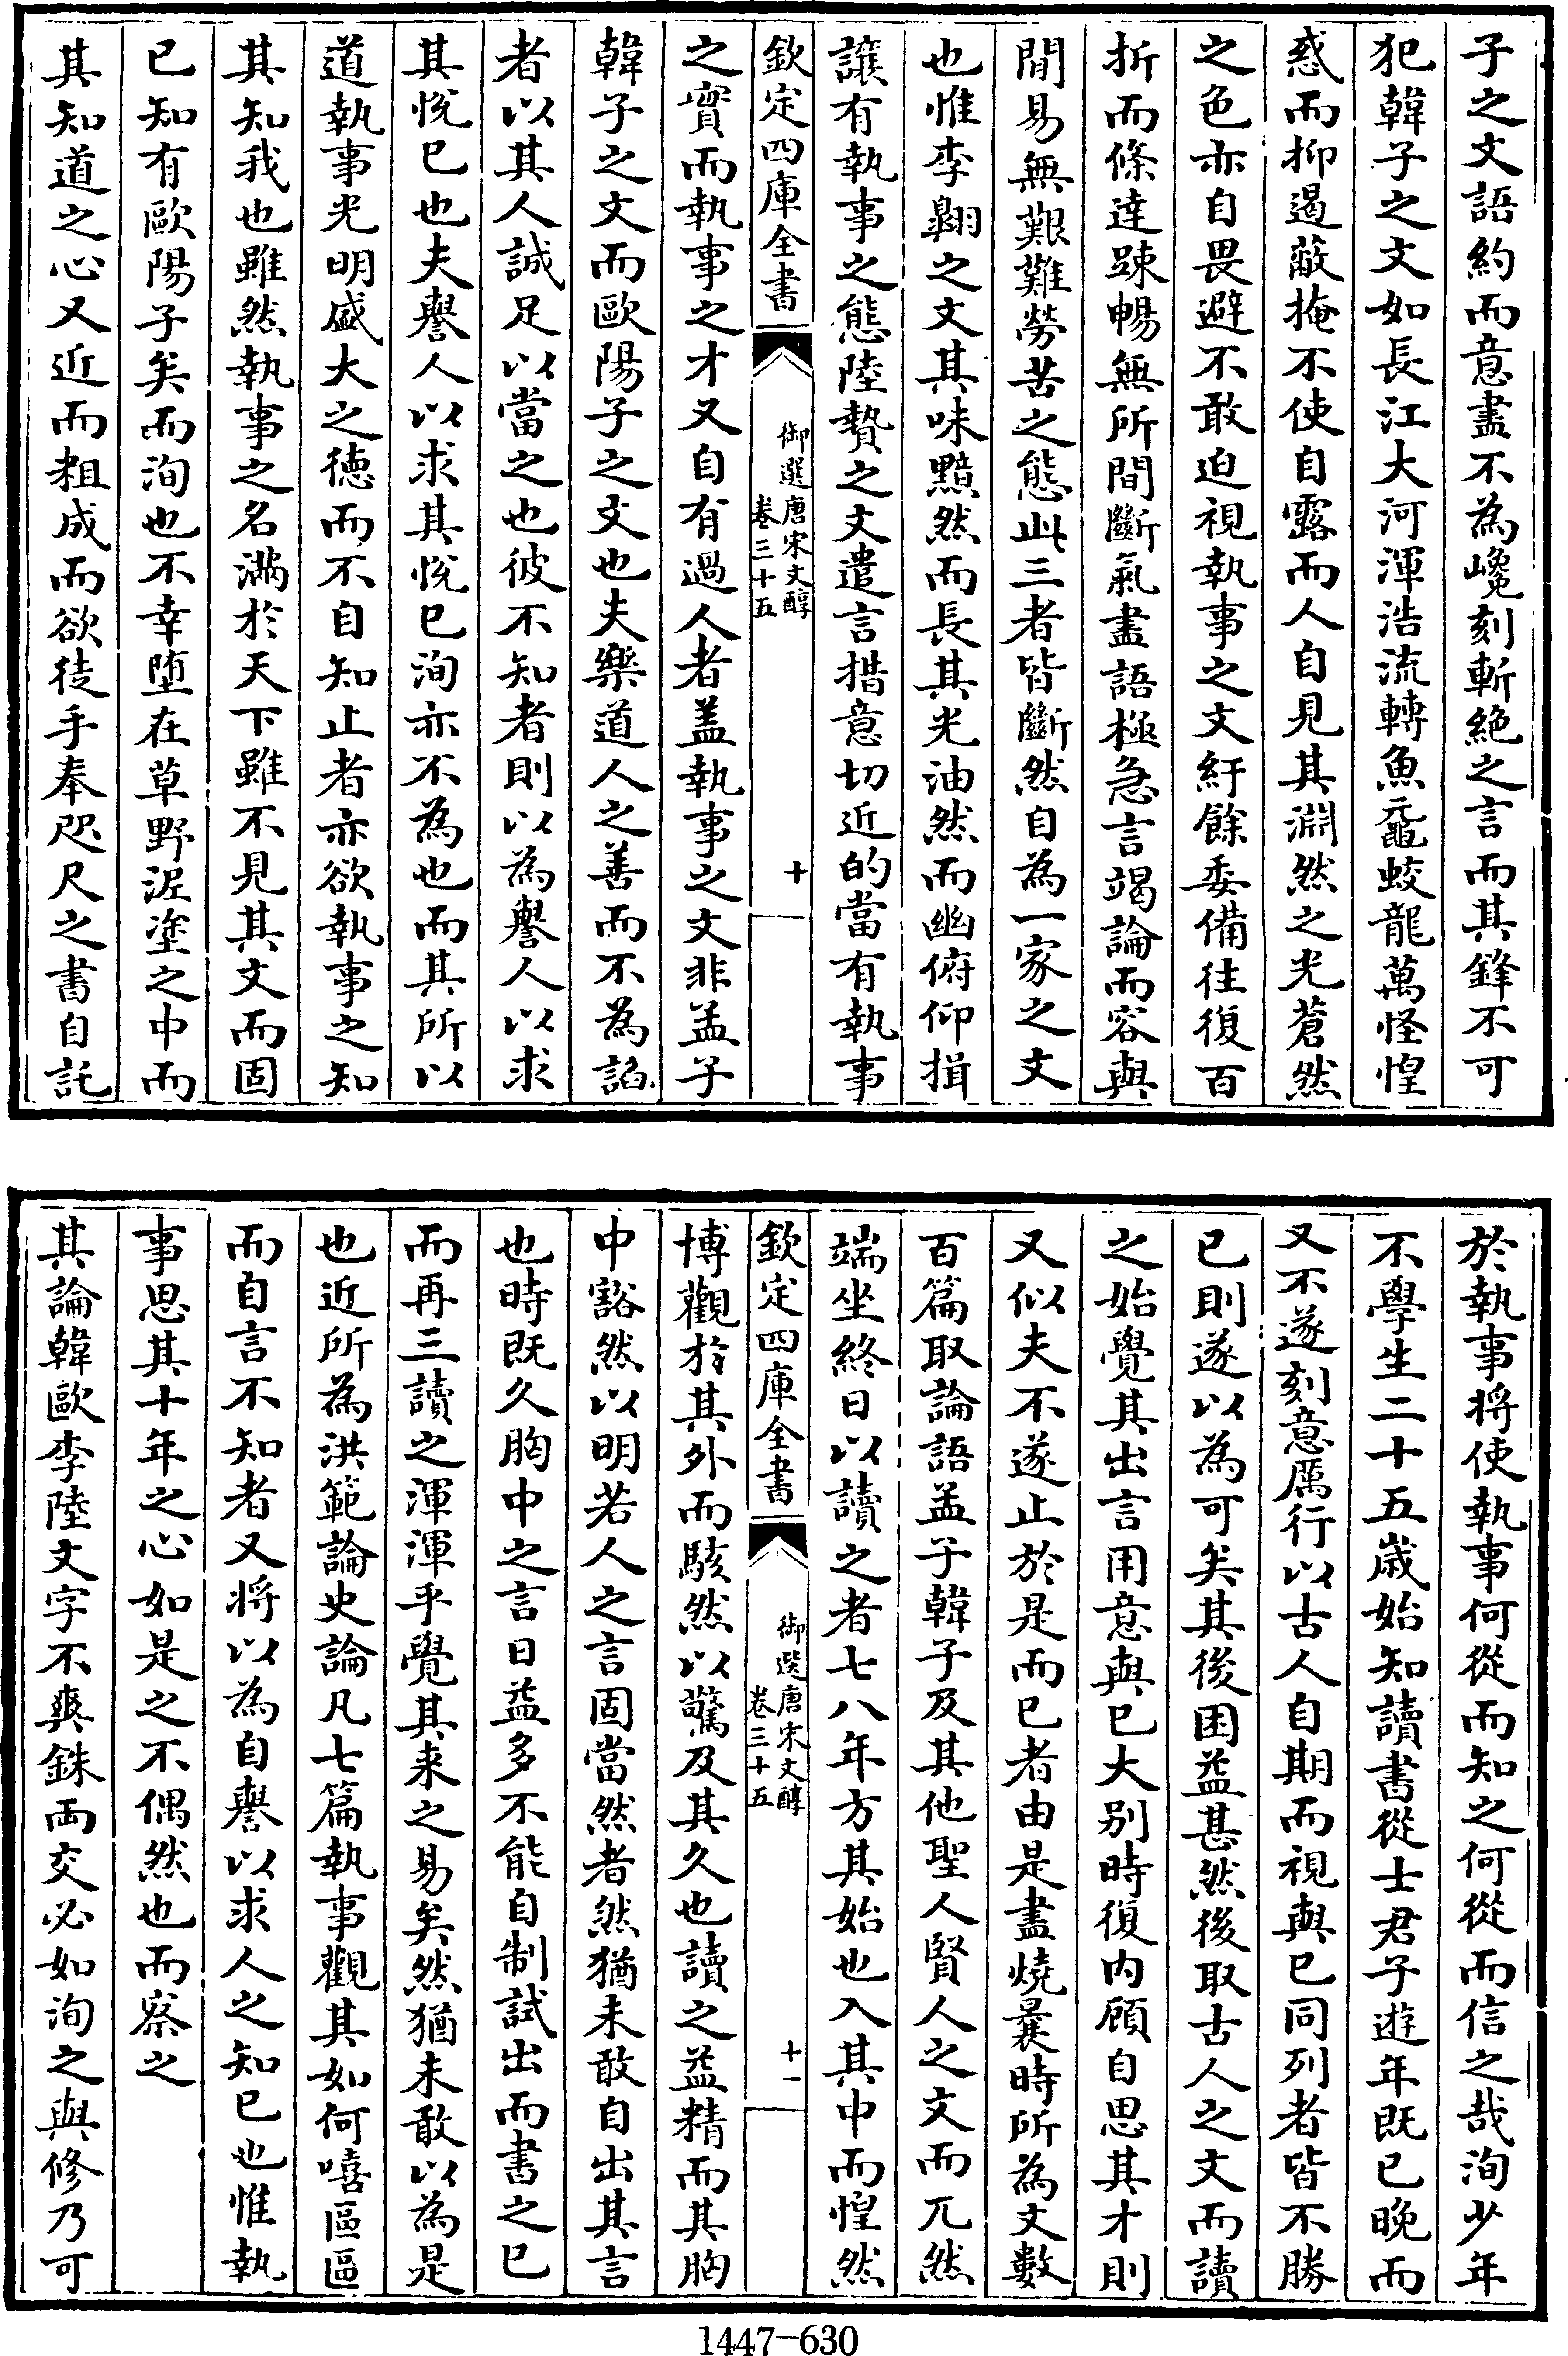 子之文語約而意盡不為巉刻斬絶之言而其鋒不可
犯韓子之文如長江大河渾浩流轉魚黿蛟龍萬怪惶
惑而抑遏蔽掩不使自露而人自見其淵然之光蒼然
之色亦自畏避不敢迫視執事之文紆餘委備往復百
折而條達踈暢無所間斷氣盡語極急言竭論而容與
閒易無艱難勞苦之態此三者皆斷然自為一家之文
也惟李翺之文其味黯然而長其光油然而幽俯仰揖
讓有執事之態陸贄之文遣言措意切近的當有執事
欽定四庫全書
御選唐宋文醇
卷三十五
十
之實而執事之才又自有過人者盖執事之文非孟子
韓子之文而歐陽子之文也夫樂道人之善而不為諂
者以其人誠足以當之也彼不知者則以為譽人以求
其悦已也夫譽人以求其悦已洵亦不為也而其所以
道執事光明盛大之徳而不自知止者亦欲執事之知
其知我也雖然執事之名滿於天下雖不見其文而固
已知有歐陽子矣而洵也不幸堕在草野泥塗之中而
其知道之心又近而粗成而欲徒手奉咫尺之書自託
於執事将使執事何從而知之何從而信之哉洵少年
不學生二十五歲始知讀書從士君子遊年既已晚而
又不遂刻意厲行以古人自期而視與已同列者皆不勝
已則遂以為可矣其後困益甚然後取古人之文而讀
之始覺其出言用意與已大别時復内顧自思其才則
又似夫不遂止於是而已者由是盡燒曩時所為文數
百篇取論語孟子韓子及其他聖人賢人之文而兀然
端坐終日以讀之者七八年方其始也入其中而惶然
欽定四庫全書
御選唐宋文醇
卷三十五
十一
博觀於其外而駭然以驚及其久也讀之益精而其胸
中豁然以明若人之言固當然者然猶未敢自出其言
也時既久胸中之言日益多不能自制試出而書之已
而再三讀之渾渾乎覺其来之易矣然猶未敢以為是
也近所為洪範論史論凡七篇執事觀其如何嘻區區
而自言不知者又将以為自譽以求人之知已也惟執
事思其十年之心如是之不偶然也而察之
其論韓歐李陸文字不爽銖兩交必如洵之與修乃可
1447-630